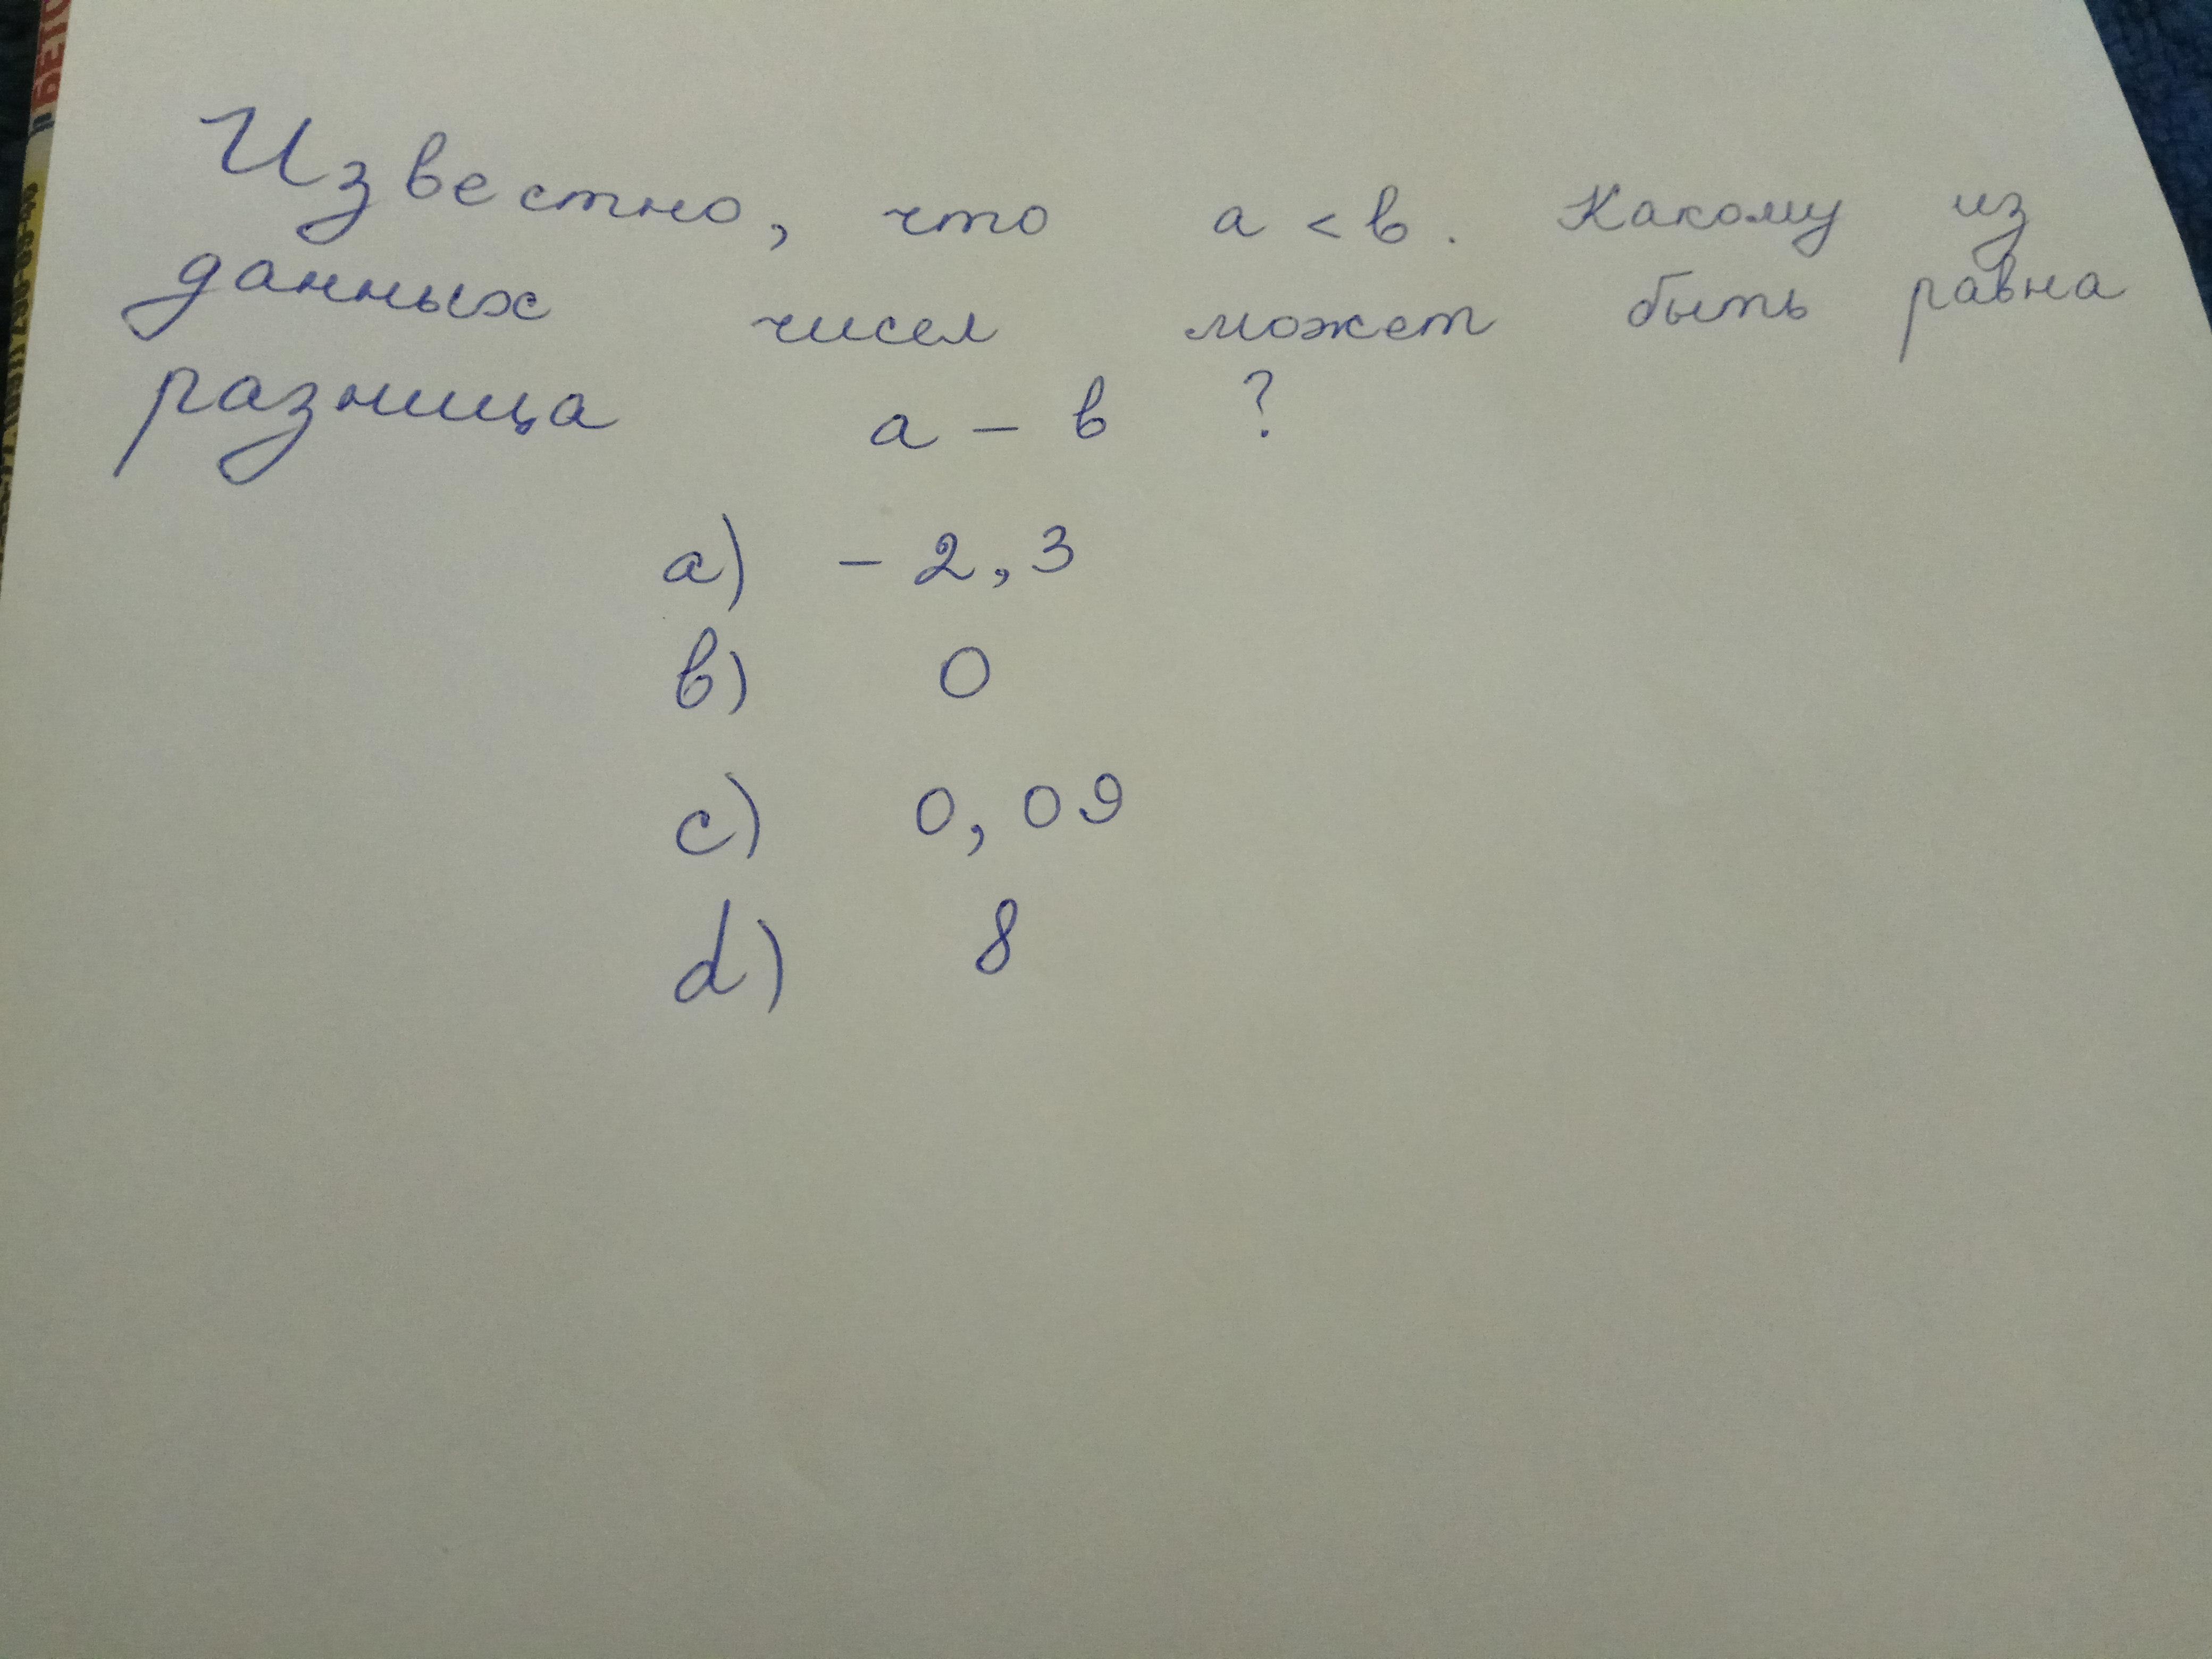 Известно, что a < b. Какому из
данных чисел может быть равна
разница a - b ?
a) - 2,3
b) 0
c) 0,09
d) 8